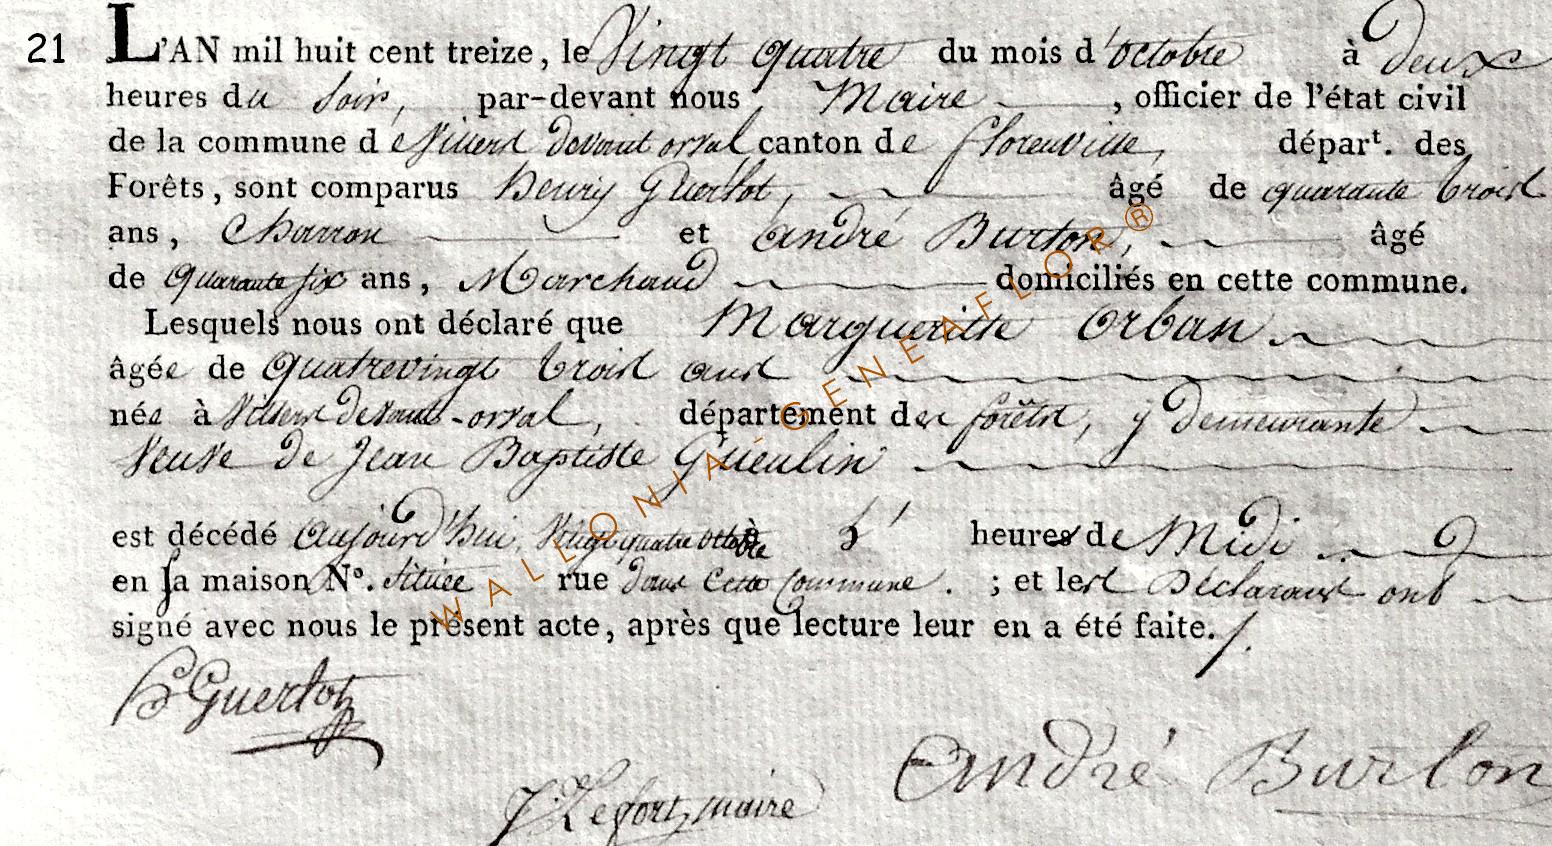 21
L'AN mil huit cent treize, le Vingt quatre du mois d'octobre à deux
heures du soir, par-devant nous Maire, officier de l'état civil
de la commune de Villers devant orval canton de florenville, départ. des
Forêts, sont comparus henry Guerlot, âgé de quarante trois
ans, Charron et andré Burton, âgé
de quarante six ans, Marchand domiciliés en cette commune.
Lesquels nous ont déclaré que Margueritte Orban
âgée de quatrevingt trois ans
née à Villers devant-orval, département des forêts, y demeurante
Veuve de Jean Baptiste Gueulin
est décédé aujourd'hui, Vingt quatre octobre à heures de Midi
en sa maison N°. située rue dans cette Commune. ; et les Déclarans ont
signé avec nous le présent acte, après que lecture leur en a été faite./.
h Guerlot
andré Burton
J. Lefort, maire
WALLONIA-GENEAFLOR®